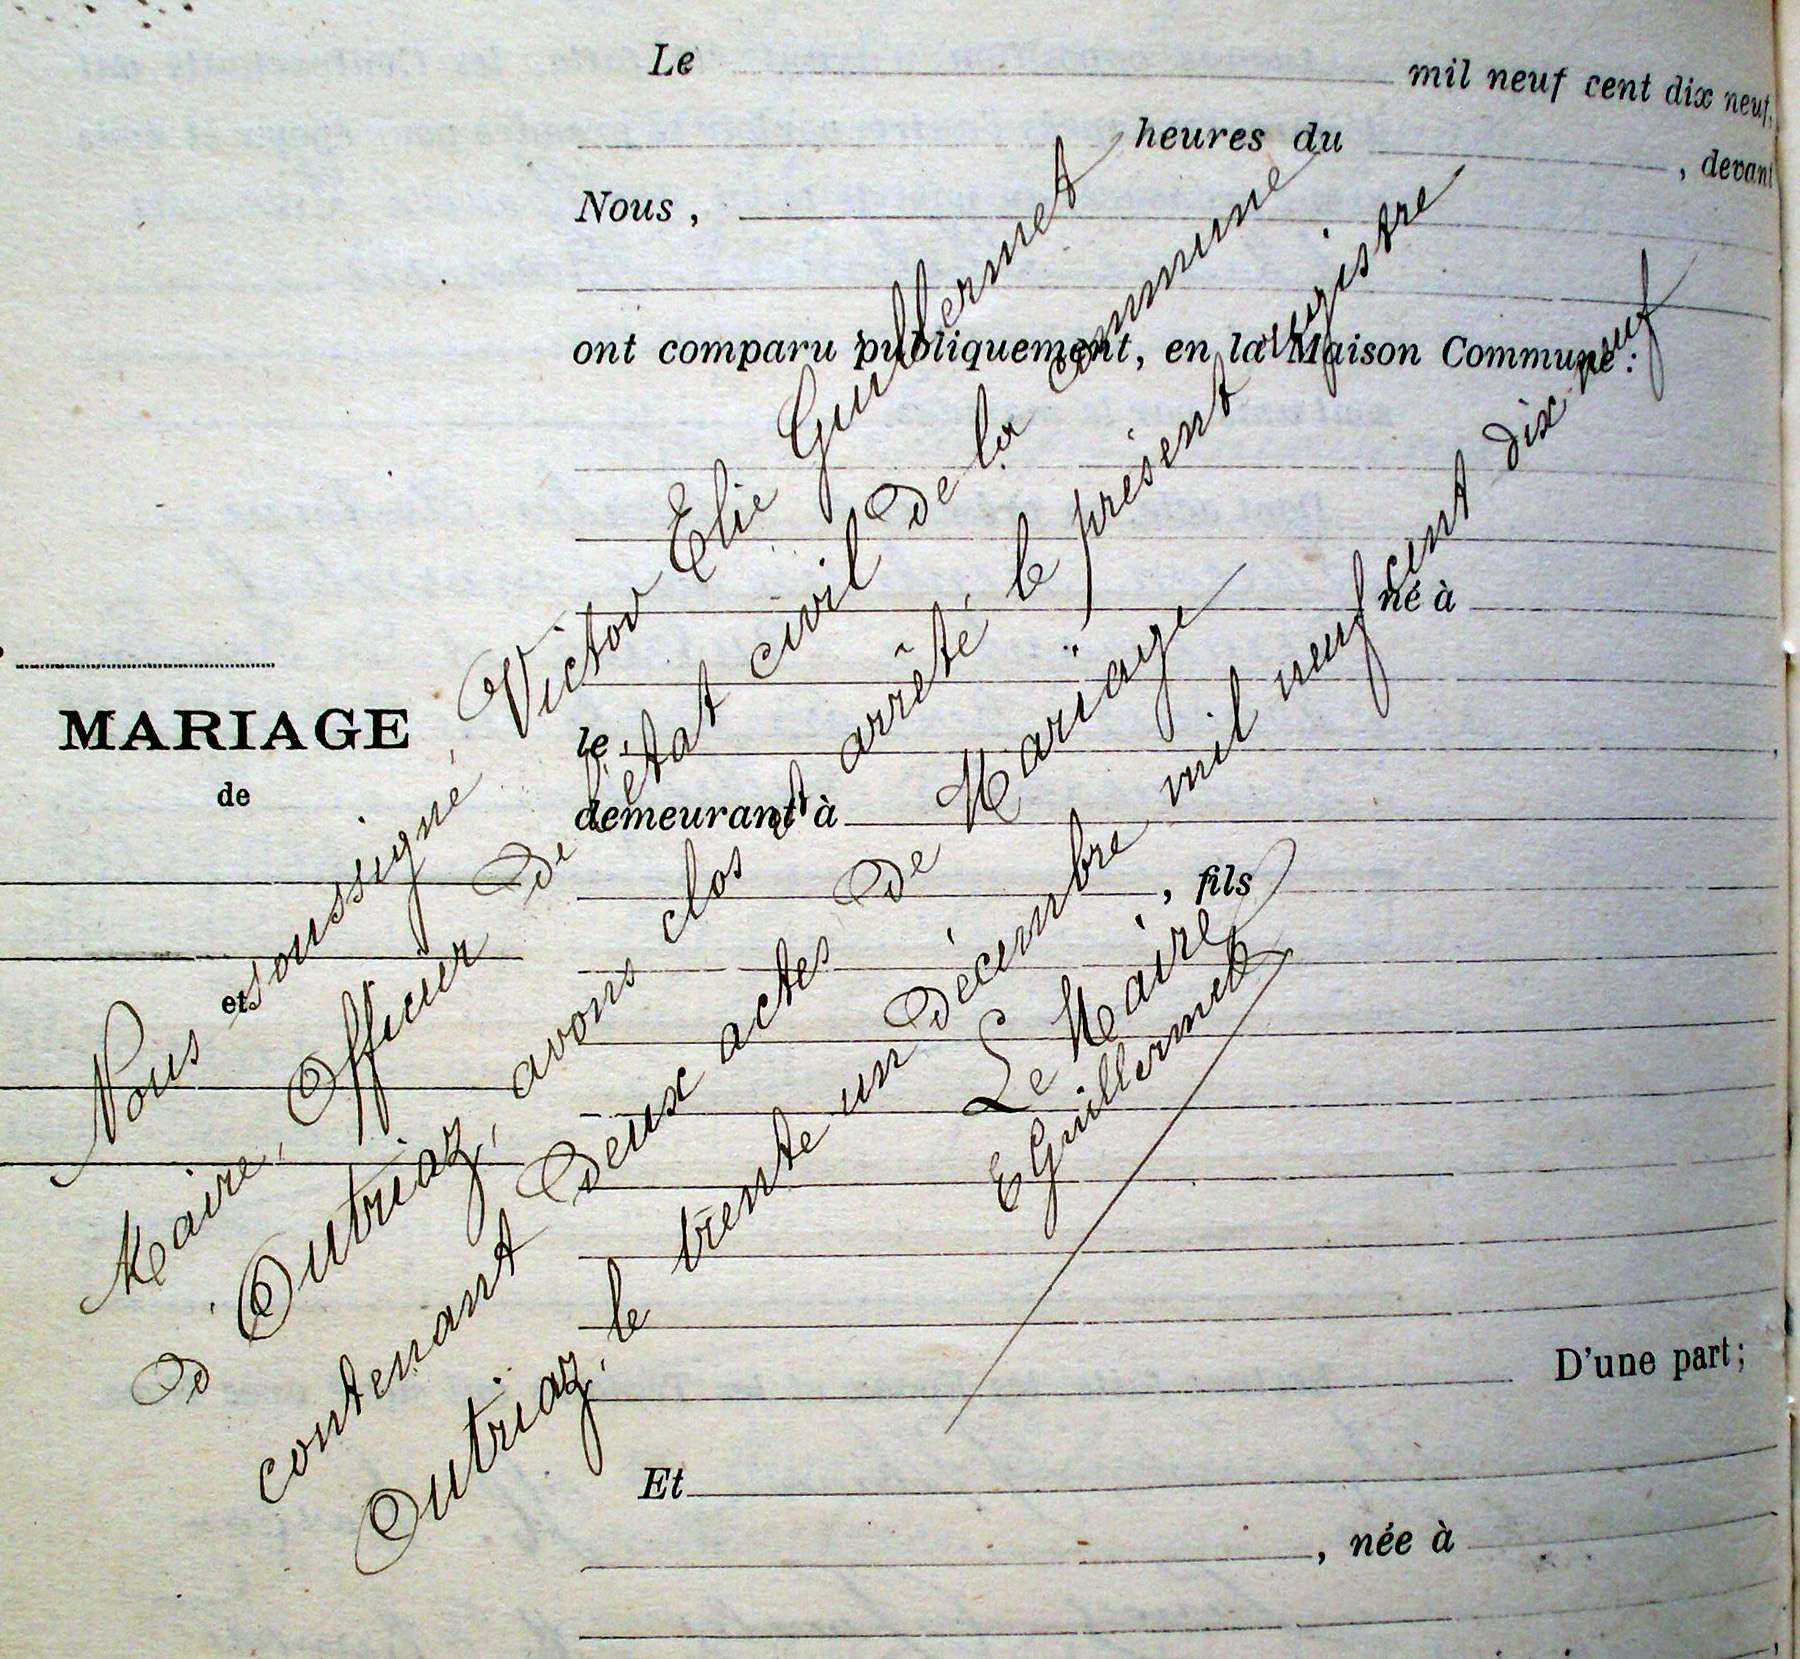 Le mil neuf cent dix neuf,
heures du , devant
Nous ,
ont comparu publiquement, en la Maison Commune :
né à
le
demeurant à
, fils
D'une part;
Et
, née à
MARIAGE
de
et
Nous soussigné, Victor Elie Guillermet
Maire, Officier de l'état civil de la commune
d'Outriaz, avons clos et arrêté le présent registre
contenant deux actes de Mariage
Outriaz, le trente un décembre mil neuf cent dix neuf
Le Maire
E Guillermet